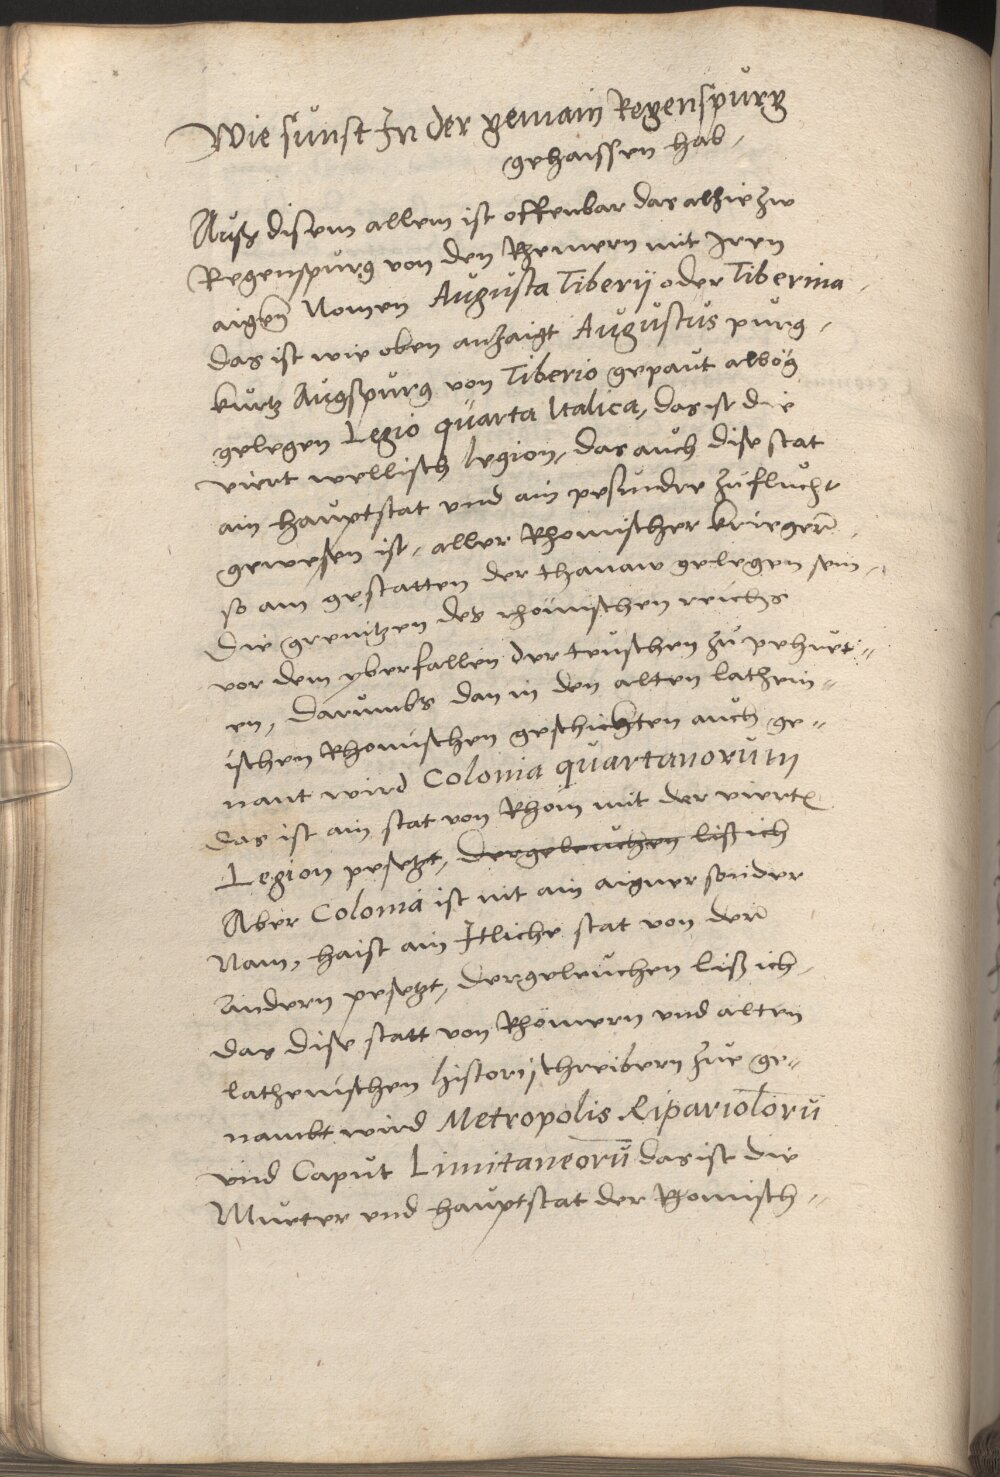 Wie sunst In der gemain Regenspurg
gehaissen hab,
Auß disem allem ist offenbar das alhie zw
Regenspurg von den Rhemern mit Iren
aigen̄ Nomen Augusta Tiberij oder Tiberina,
das ist wie oben anzaigt Augustus purg,
kurtz Augspurg von Tiberio gepaut
gelegen Legio quarta Italica, das ist die
viert wellisch legion, das auch dise stat
ain hauptstat und ain pesundre zuflucht
gewesen ist, aller Rhomischer krieger̄
so am gestatten der thanaw gelegen sein,
Die grenitzen des rhömischen reichs
vor dem yberfallen der teuschen zu pehuet„
en, darumbs dan in den alten lathein„
ischen Rhomischen geschichten auch ge„
nant wird Colonia quartanorum
das ist ain stat von Rhom mit der viert
Legion pesetzt, dergeleuchen liß ich
Aber Colonia ist nit ain aigner sonder
Nam, haist ain Itliche stat von der̄
andern pesetzt, dergeleuchen liß ich,
das dise statt von Rhömern und alten
lathenischen historischreibern zue ge„
nambt wird Metropolis Ripariolorū
und Caput Limitaneorū das ist die
Mueter und hauptstat der Rhomisch„